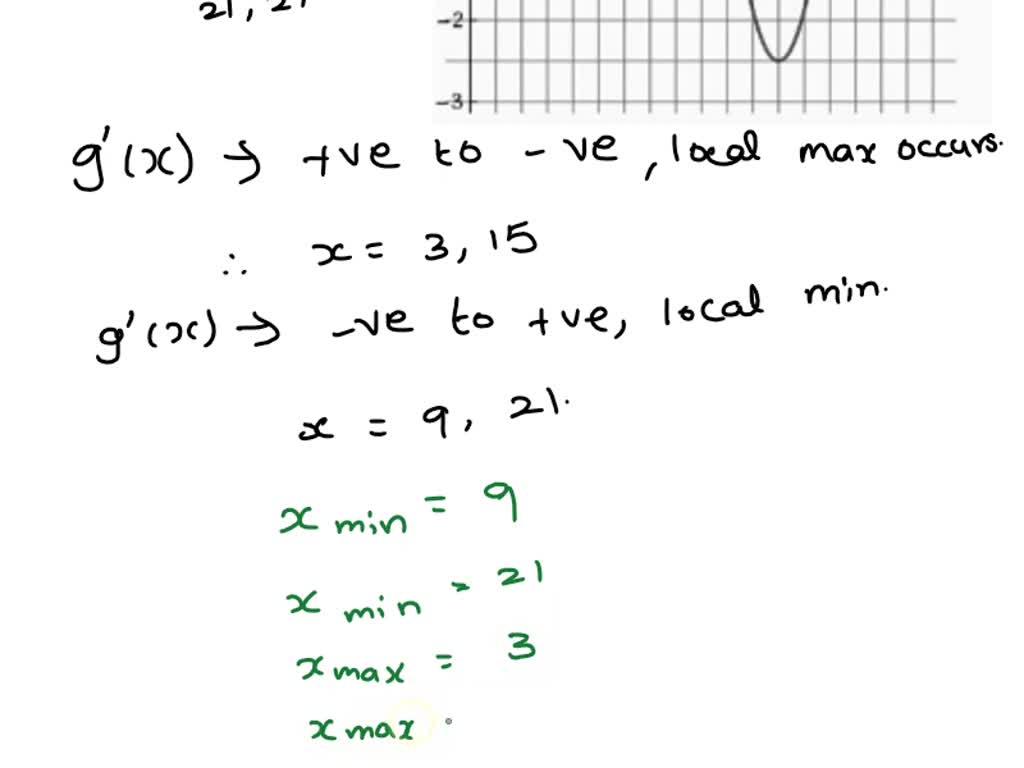 21, 21
-2
-3
g'(x) → +ve to -ve, local max occurs.
∴ x = 3, 15
g'(x) → -ve to +ve, local min.
x = 9, 21.
x min = 9
x min = 21
x max = 3
x max